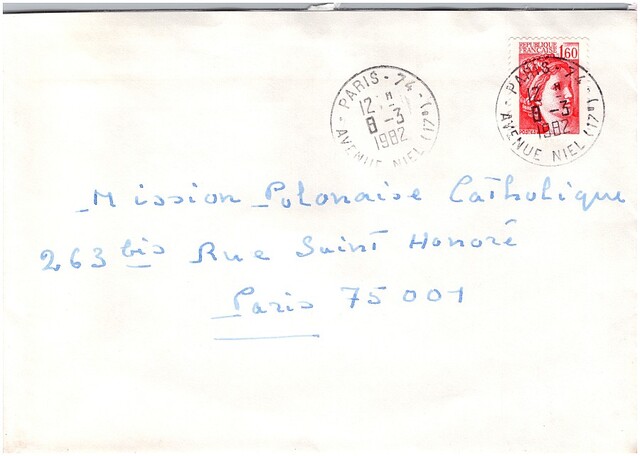 REPUBLIQUE FRANÇAISE 1,60
PARIS - 74 - (17e)
12 H
8 - 3
1982
AVENUE NIEL
PARIS - 74 - (17e)
12 H
8 - 3
1982
AVENUE NIEL
Mission Polonaise Catholique
263 bis Rue Saint Honoré
Paris 75001